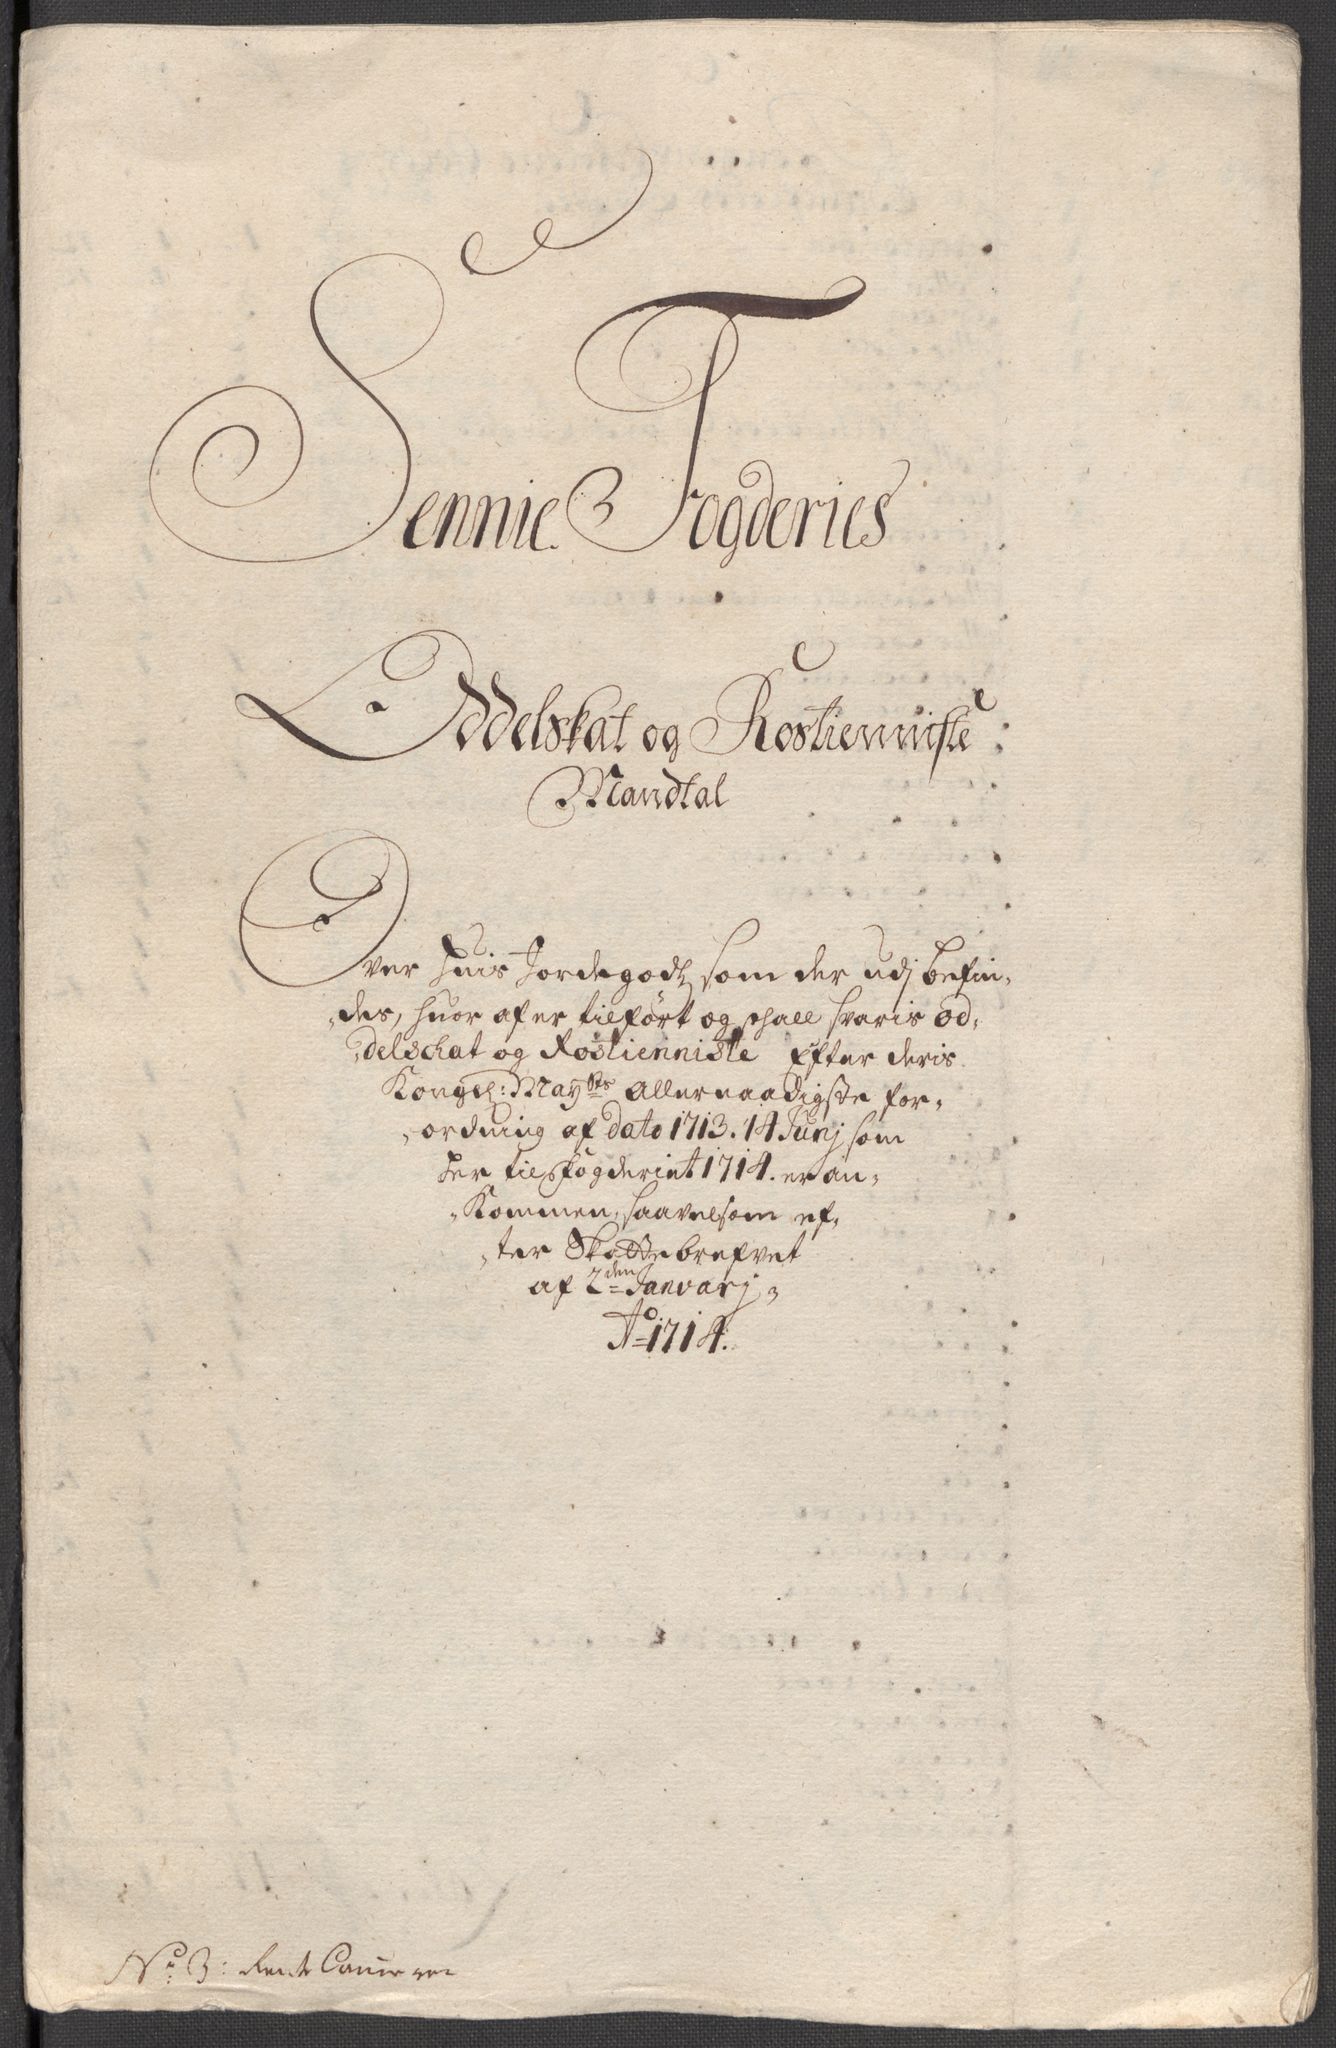 Sennie Fogderies
Oddelskat og Rostienniste
Mandtal
Over huis Jordegodtz som der udj befin-
-des, huor af er tilført og schall svaris od-
-delschat og Rostienniste Efter deris
Kongel: Mayts Allernaadigste for-
-ordning af dato 1713. 14 Junj som
her til fogderiet 1714. er an-
-Kommen, saavelsom ef-
-ter Skattebrefvet
af 2den Januarj
Ao 1714.
No 3: Rente Cammeret